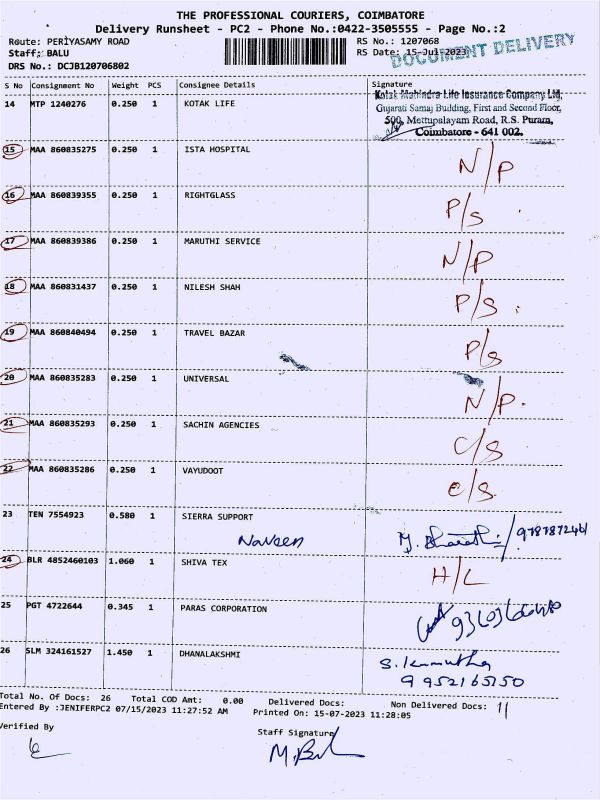 THE PROFESSIONAL COURIERS, COIMBATORE
Delivery Runsheet - PC2 - Phone No.:0422-3505555 - Page No.:2
Route: PERIYASAMY ROAD RS No.: 1207068
Staff: BALU RS Date: 15-Jul-2023
DOCUMENT DELIVERY
DRS No.: DCJB120706802
S No Consignment No Weight PCS Consignee Details Signature
14 MTP 1240276 0.250 1 KOTAK LIFE
Kotak Mahindra Life Insurance Company Ltd,
Gujarati Samaj Building, First and Second Floor,
500, Mettupalayam Road, R.S. Puram,
Coimbatore - 641 002.
15 MAA 860835275 0.250 1 ISTA HOSPITAL N/P
16 MAA 860839355 0.250 1 RIGHTGLASS P/S
17 MAA 860839386 0.250 1 MARUTHI SERVICE N/P
18 MAA 860831437 0.250 1 NILESH SHAH P/S
19 MAA 860840494 0.250 1 TRAVEL BAZAR P/S
20 MAA 860835283 0.250 1 UNIVERSAL N/P.
21 MAA 860835293 0.250 1 SACHIN AGENCIES C/S
22 MAA 860835286 0.250 1 VAYUDOOT C/S.
23 TEN 7554923 0.580 1 SIERRA SUPPORT
Naveen
24 BLR 4852460103 1.060 1 SHIVA TEX H/L
25 PGT 4722644 0.345 1 PARAS CORPORATION
26 SLM 324161527 1.450 1 DHANALAKSHMI
9952165150
Total No. Of Docs: 26 Total COD Amt: 0.00 Delivered Docs: Non Delivered Docs: 11
Entered By :JENIFERPC2 07/15/2023 11:27:52 AM Printed On: 15-07-2023 11:28:05
Verified By Staff Signature